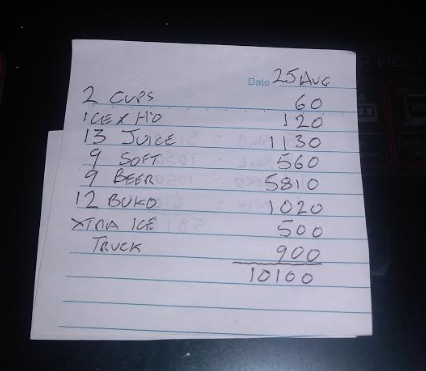 Date 25 AUG
2 CUPS 60
ICE X H2O 120
13 JUICE 1130
9 SOFT 560
9 BEER 5810
12 BUKO 1020
XTRA ICE 500
TRUCK 900
10100